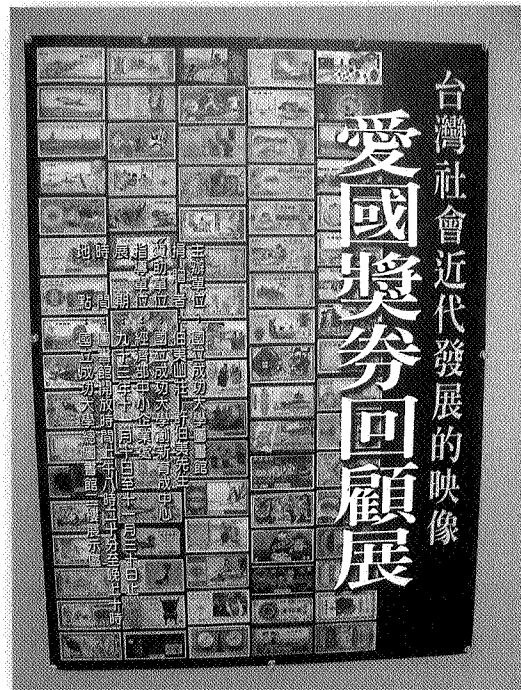 台灣社會近代發展的映像
愛國獎券回顧展
主辦單位 國立成功大學圖書館
贊助單位 國立成功大學創新育成中心
指導單位 經濟部中小企業處
展期 九十三年十一月十日至十二月三十日止
時間 圖書館開放時間上午八時五十分至晚間十時
地點 國立成功大學總圖書館一樓展示區